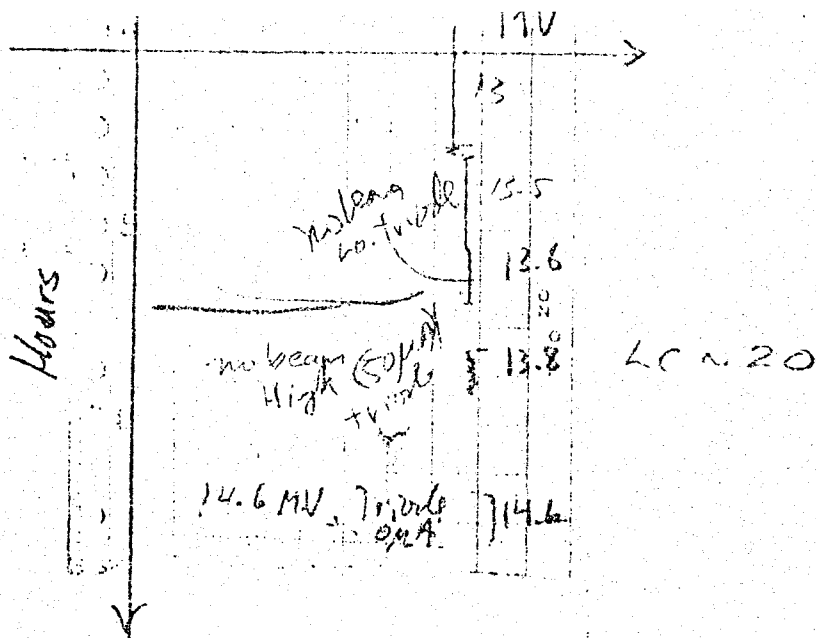 MV
13
no beam
no. triode
13.5
13.6
20
Hours
no beam
High (50μA)
triode
13.8
LC ~ 20
14.6 MV. Triode
0μA.
14.6